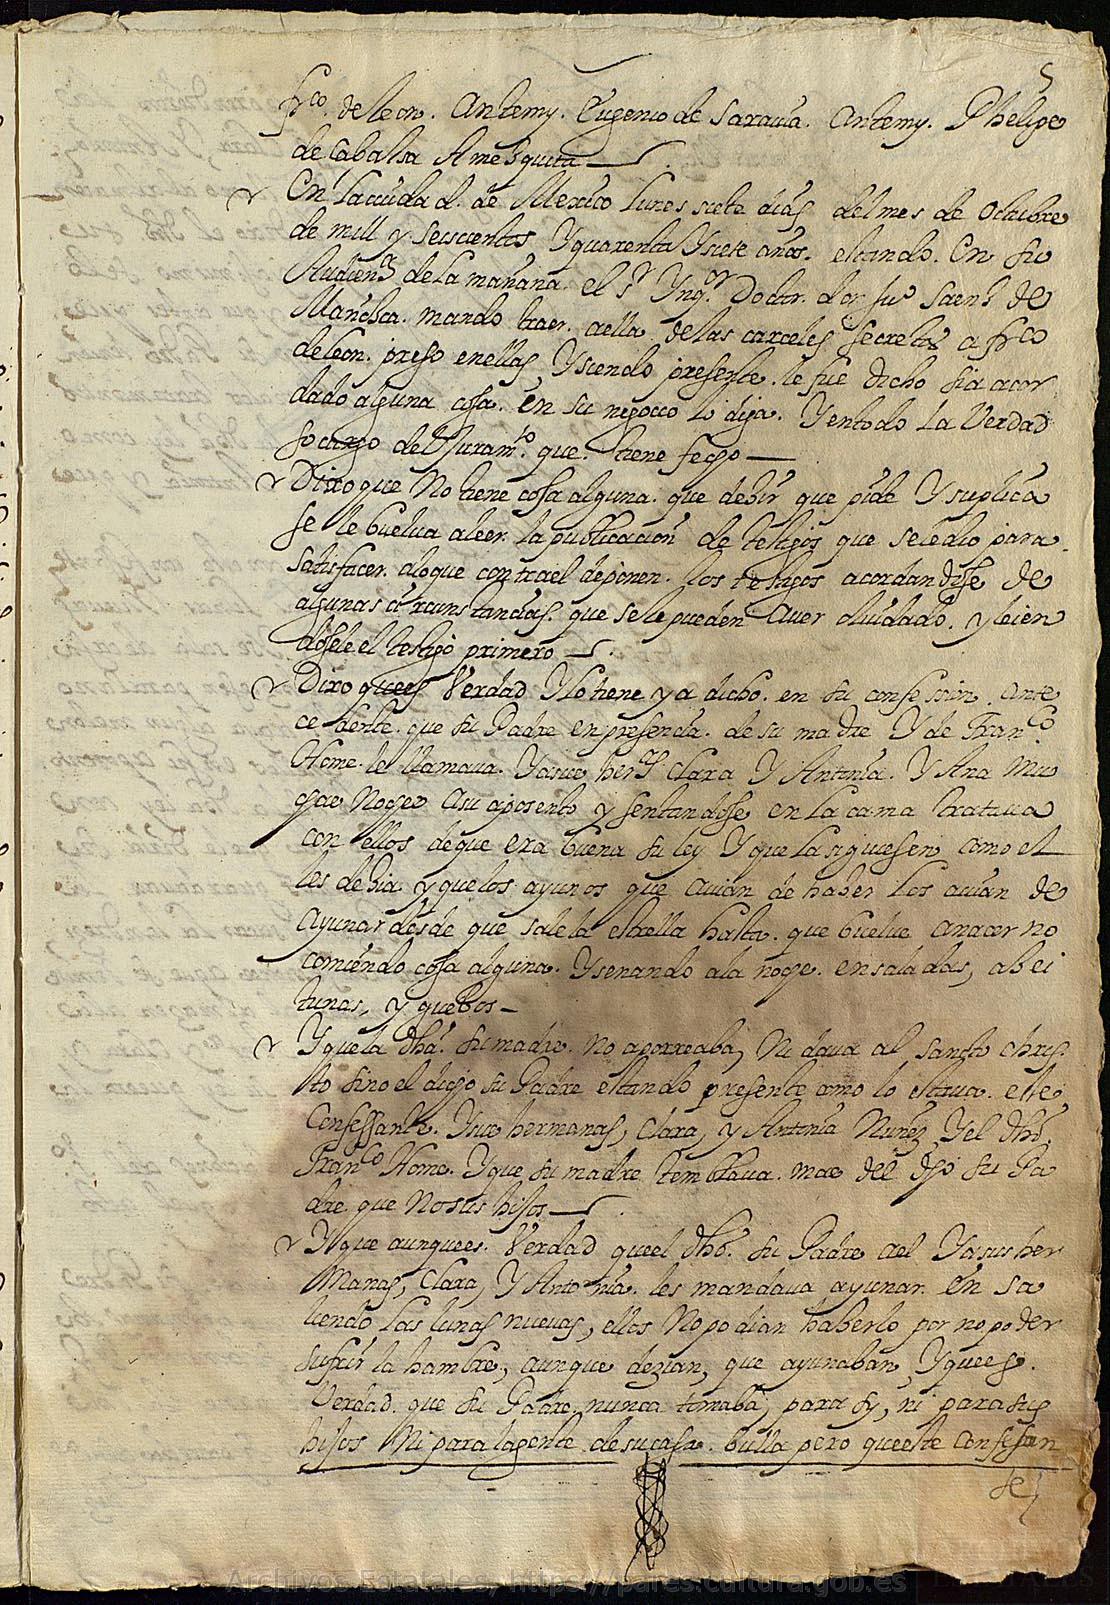 5
fco. de leon. Antemy. Eugenio de Saravia. Antemy. Phelipe
de Çabalsa Amesquita
En la ciudad. de Mexico lunes siete dias del mes de octubre
de mill y seiscientos y quarenta y siete años. estando. En su
Audienª de la mañana. el sr Ynqor Doctor. don Juº Saenz de
Mañosca. mando traer. a ella de las carceles secretas a frco
de leon. preso en ellas y siendo presente. le fue dicho si a acor
dado alguna cosa. en su negocio lo diga. Y en todo la Verdad
so cargo del Juramto. que. tiene fecho
Dixo que No tiene cosa alguna. que debir que pide Y suplica
se le buelva a leer. la publicacion de testigos que se le dio para
satisfacer. a lo que contra el deponen. los testigos acordandose de
algunas circunstancias. que se le pueden aver olvidado. y leien
dosele el testigo primero
Dixo que es Verdad Y lo tiene ya dicho. en su confession. ante
ce dente. que su Padre en presencia. de su madre Y de Franco
Home. le llamava. Ya sus hers Clara Y Antonia. Y Ana Mu
chas Noches a su aposento y sentandose en la cama tratava
con ellos de que era buena su ley Y que la siguiesen como el
les debia y que los ayunos que avian de haber los avian de
Ayunar desde que sale la estrella hasta. que buelve a nacer no
comiendo cosa alguna. Y senando a la noche. ensaladas, abei
tunas, y guebos
Y que la dha. su madre. no aporreaba, Ni dava al sancto chris
to sino el dicho su Padre estando presente como lo estava. este
Confessante. Y sus hermanas, Clara, y Antonia Nuñez Y el dho.
Franco Home. Y que su madre temblava. mas del dho su Pa
dre. que No sus hijos
Y que aunque es. Verdad que el dho. su Padre a el Ya sus her
Manas, Clara, Y Antonia. les mandava ayunar. en sa
liendo las lunas nuevas, ellos No podian haberlo por no poder
sufrir la hambre, aunque dezian, que ayunaban, Y que es.
Verdad. que su Padre. nunca tomaba, para sy, ni para sus
hijos Ni para la gente de su casa. bulla pero que este Confessan
te
Archivos Estatales, https://pares.cultura.gob.es